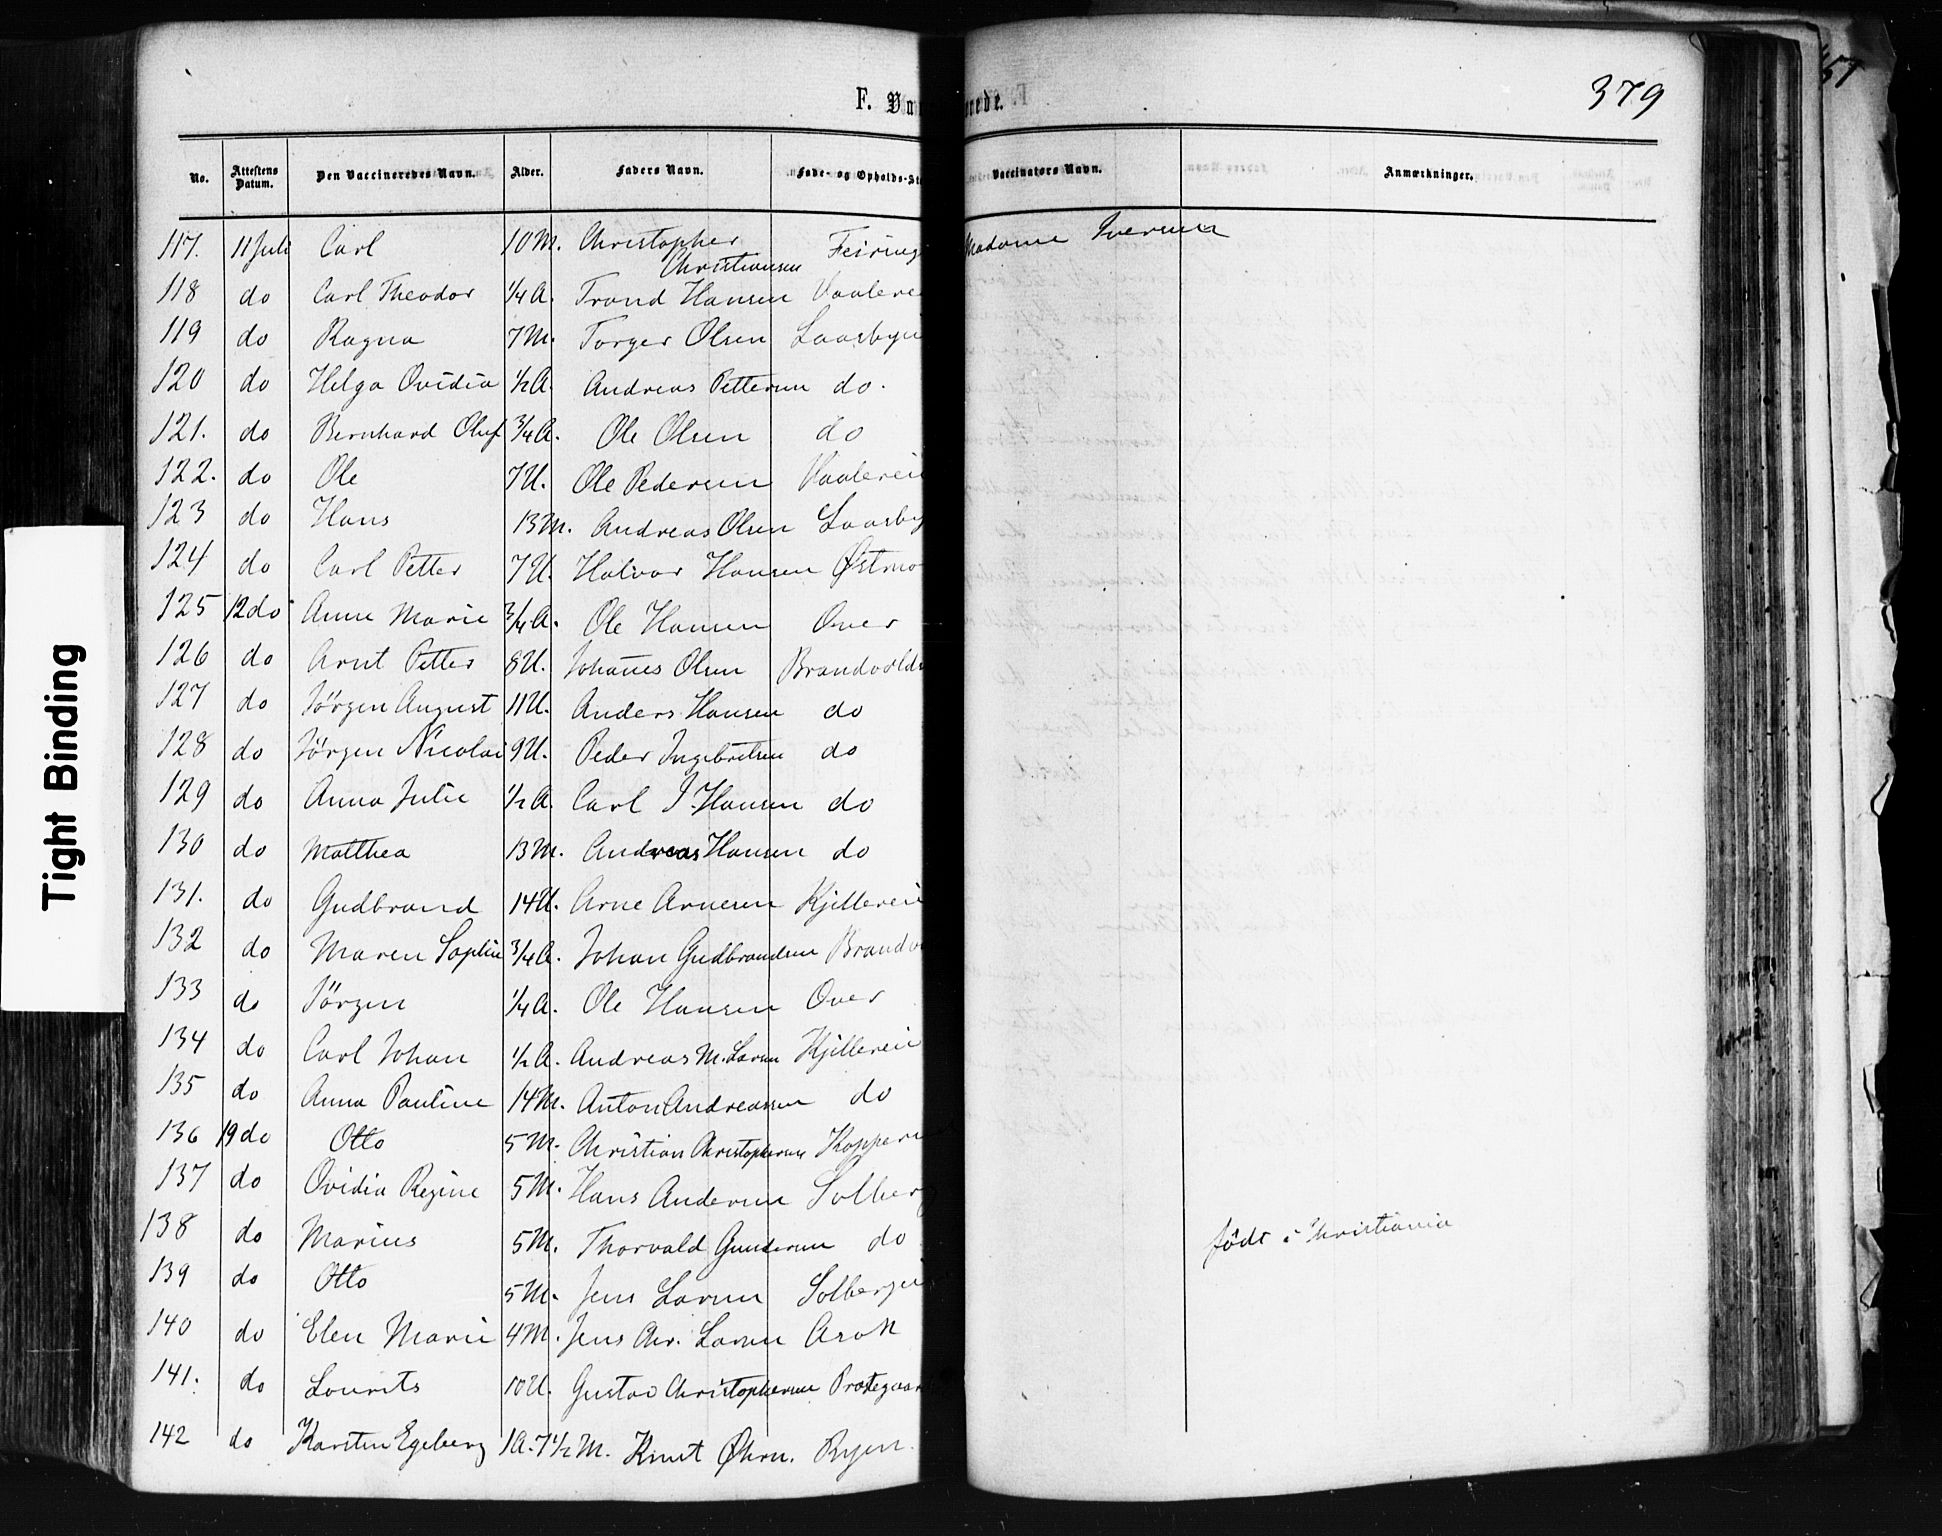 379
F. Va erede.
No. Attestens Datum. Den Vaccineredes Navn. Alder. Faders Navn. Føde- og Opholds-St Vaccinators Navn. Anmærkninger.
117. 11 Juli Carl 10 M. Christopher Christiansen Feiring Madame Iversen
118 do Carl Theodor 1/4 A. Trond Hansen Vaalerei
119 do Ragna 7 M. Torger Olsen Laasbyei
120 do Helga Ovidia 1/2 A. Andreas Pettersen do.
121. do Bernhard Oluf 3/4 A. Ole Olsen do
122. do Ole 7 U. Ole Pedersen Vaalerei
123 do Hans 13 M. Andreas Olsen Laasby
124 do Carl Petter 7 U. Halvor Hansen Østmo
125 12 do Anne Marie 3/4 A. Ole Hansen Over
126 do Arnt Petter 8 U. Johanes Olsen Brandvolds
127 do Jörgen August 11 U. Anders Hansen do
128 do Jörgen Nicolai 9 U. Peder Ingebretsen do
129 do Anna Julie 1/2 A. Carl J. Hansen do
130 do Matthea 13 M. Andreas Hansen do
131. do Gudbrand 14 U. Arne Arnesen Kjillerei
132 do Maren Sophie 3/4 A. Johan Gudbrandsen Brandv
133 do Jörgen 1/4 A. Ole Hansen Over
134 do Carl Johan 1/2 A. Andreas M. Larsen Kjillerei
135 do Anna Pauline 14 M. Anton Andreassen do
136 19 do Otto 5 M. Christian Christophersen Kopper
137 do Ovidia Regine 5 M. Hans Andersen Solberg
138 do Marius 5 M. Thorvald Gundersen do födt i Christiania
139 do Otto 5 M. Jens Larsen Solbergei
140 do Elen Marie 4 M. Jens Larsen Arok
141. do Lourits 10 U. Gustav Christophersen Prestegaar
142 do Karsten Egeberg 1 A. 7 1/2 M. Knut Øhrn. Ryen.
Tight Binding